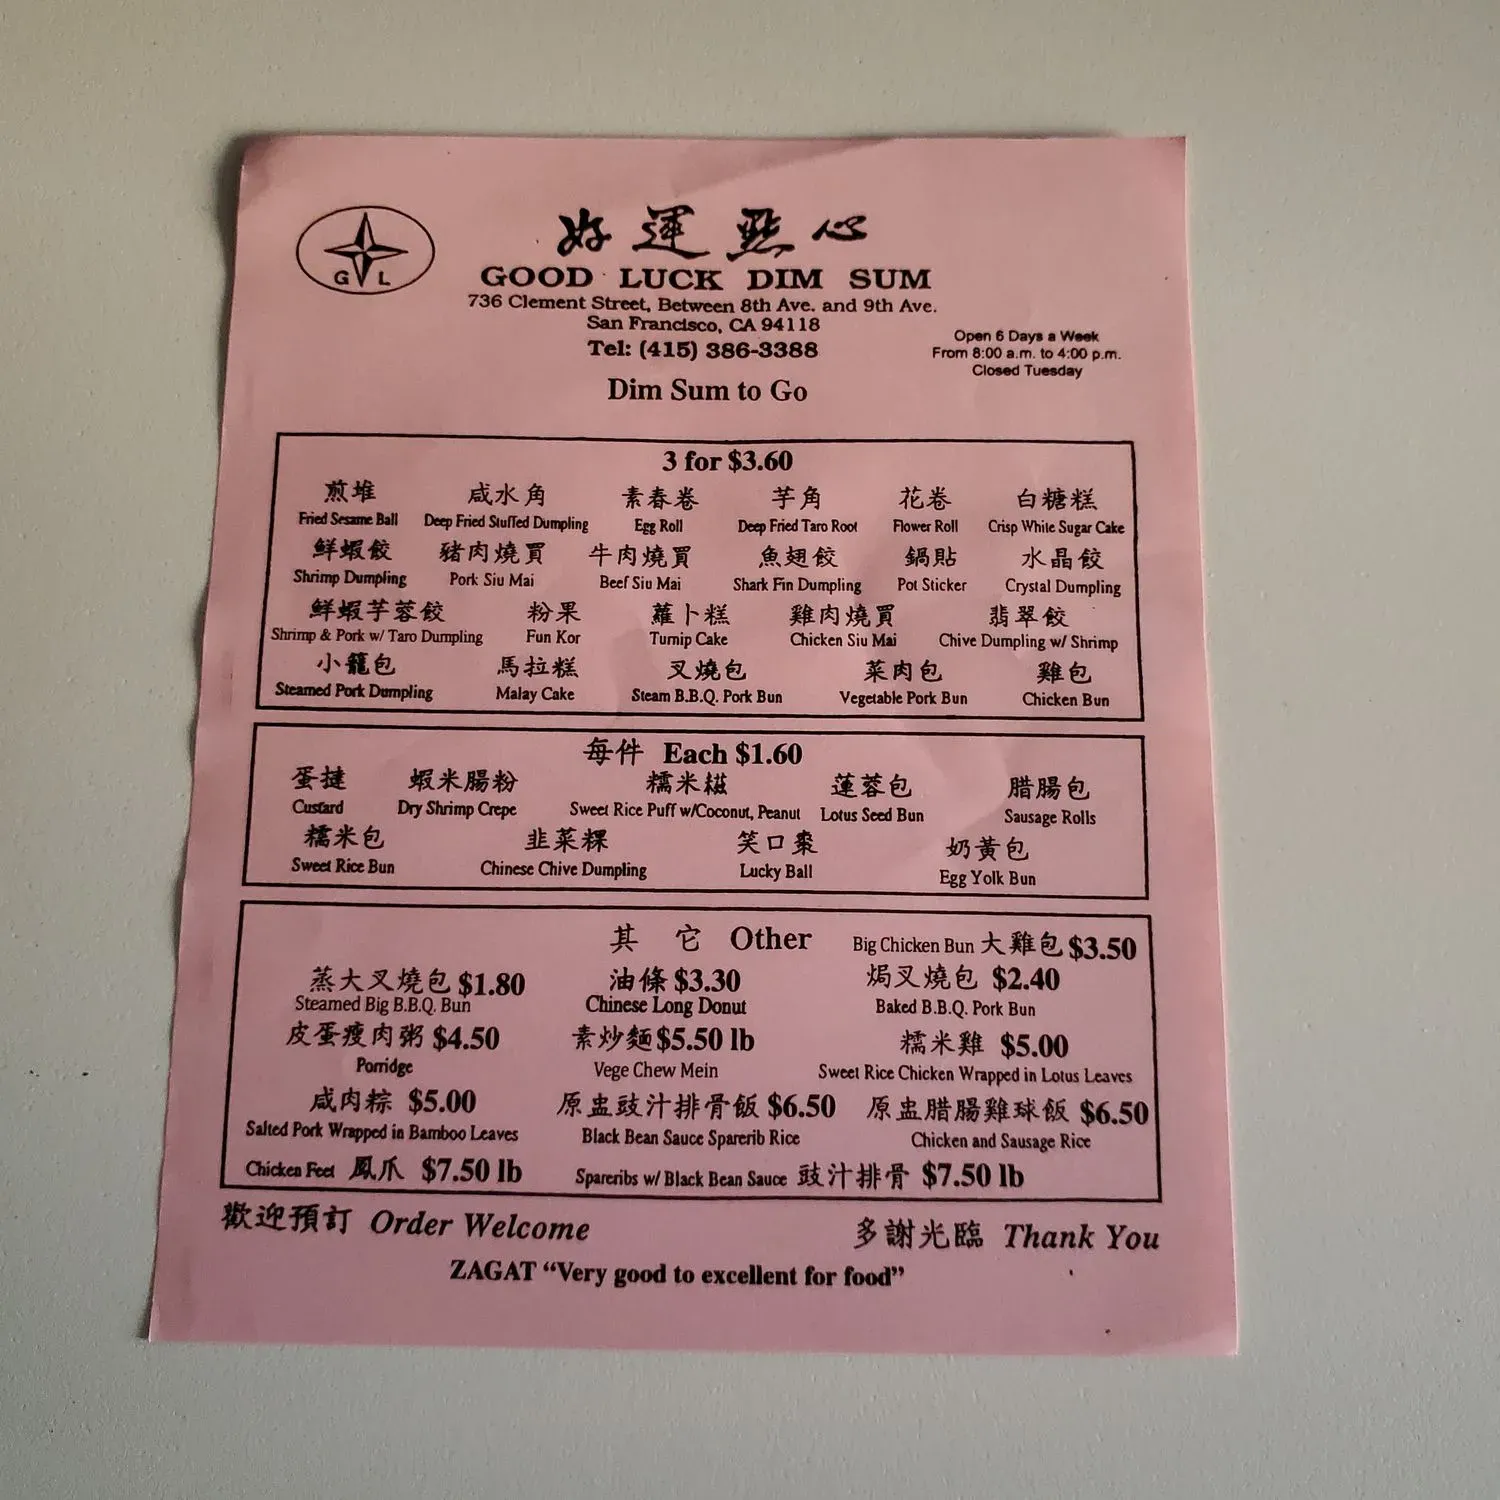 G L
好運點心
GOOD LUCK DIM SUM
736 Clement Street, Between 8th Ave. and 9th Ave.
San Francisco, CA 94118
Tel: (415) 386-3388
Open 6 Days a Week
From 8:00 a.m. to 4:00 p.m.
Closed Tuesday
Dim Sum to Go
3 for $3.60
煎堆 咸水角 素春卷 芋角 花卷 白糖糕
Fried Sesame Ball Deep Fried Stuffed Dumpling Egg Roll Deep Fried Taro Root Flower Roll Crisp White Sugar Cake
鮮蝦餃 豬肉燒買 牛肉燒買 魚翅餃 鍋貼 水晶餃
Shrimp Dumpling Pork Siu Mai Beef Siu Mai Shark Fin Dumpling Pot Sticker Crystal Dumpling
鮮蝦芋蓉餃 粉果 蘿卜糕 雞肉燒買 翡翠餃
Shrimp & Pork w/ Taro Dumpling Fun Kor Turnip Cake Chicken Siu Mai Chive Dumpling w/ Shrimp
小籠包 馬拉糕 叉燒包 菜肉包 雞包
Steamed Pork Dumpling Malay Cake Steam B.B.Q. Pork Bun Vegetable Pork Bun Chicken Bun
每件 Each $1.60
蛋撻 蝦米腸粉 糯米糍 蓮蓉包 腊腸包
Custard Dry Shrimp Crepe Sweet Rice Puff w/Coconut, Peanut Lotus Seed Bun Sausage Rolls
糯米包 韭菜粿 笑口棗 奶黃包
Sweet Rice Bun Chinese Chive Dumpling Lucky Ball Egg Yolk Bun
其它 Other Big Chicken Bun 大雞包 $3.50
蒸大叉燒包 $1.80 油條 $3.30 焗叉燒包 $2.40
Steamed Big B.B.Q. Bun Chinese Long Donut Baked B.B.Q. Pork Bun
皮蛋瘦肉粥 $4.50 素炒麵 $5.50 lb 糯米雞 $5.00
Porridge Vege Chew Mein Sweet Rice Chicken Wrapped in Lotus Leaves
咸肉粽 $5.00 原盅豉汁排骨飯 $6.50 原盅腊腸雞球飯 $6.50
Salted Pork Wrapped in Bamboo Leaves Black Bean Sauce Sparerib Rice Chicken and Sausage Rice
Chicken Feet 鳳爪 $7.50 lb Spareribs w/ Black Bean Sauce 豉汁排骨 $7.50 lb
歡迎預訂 Order Welcome 多謝光臨 Thank You
ZAGAT “Very good to excellent for food”